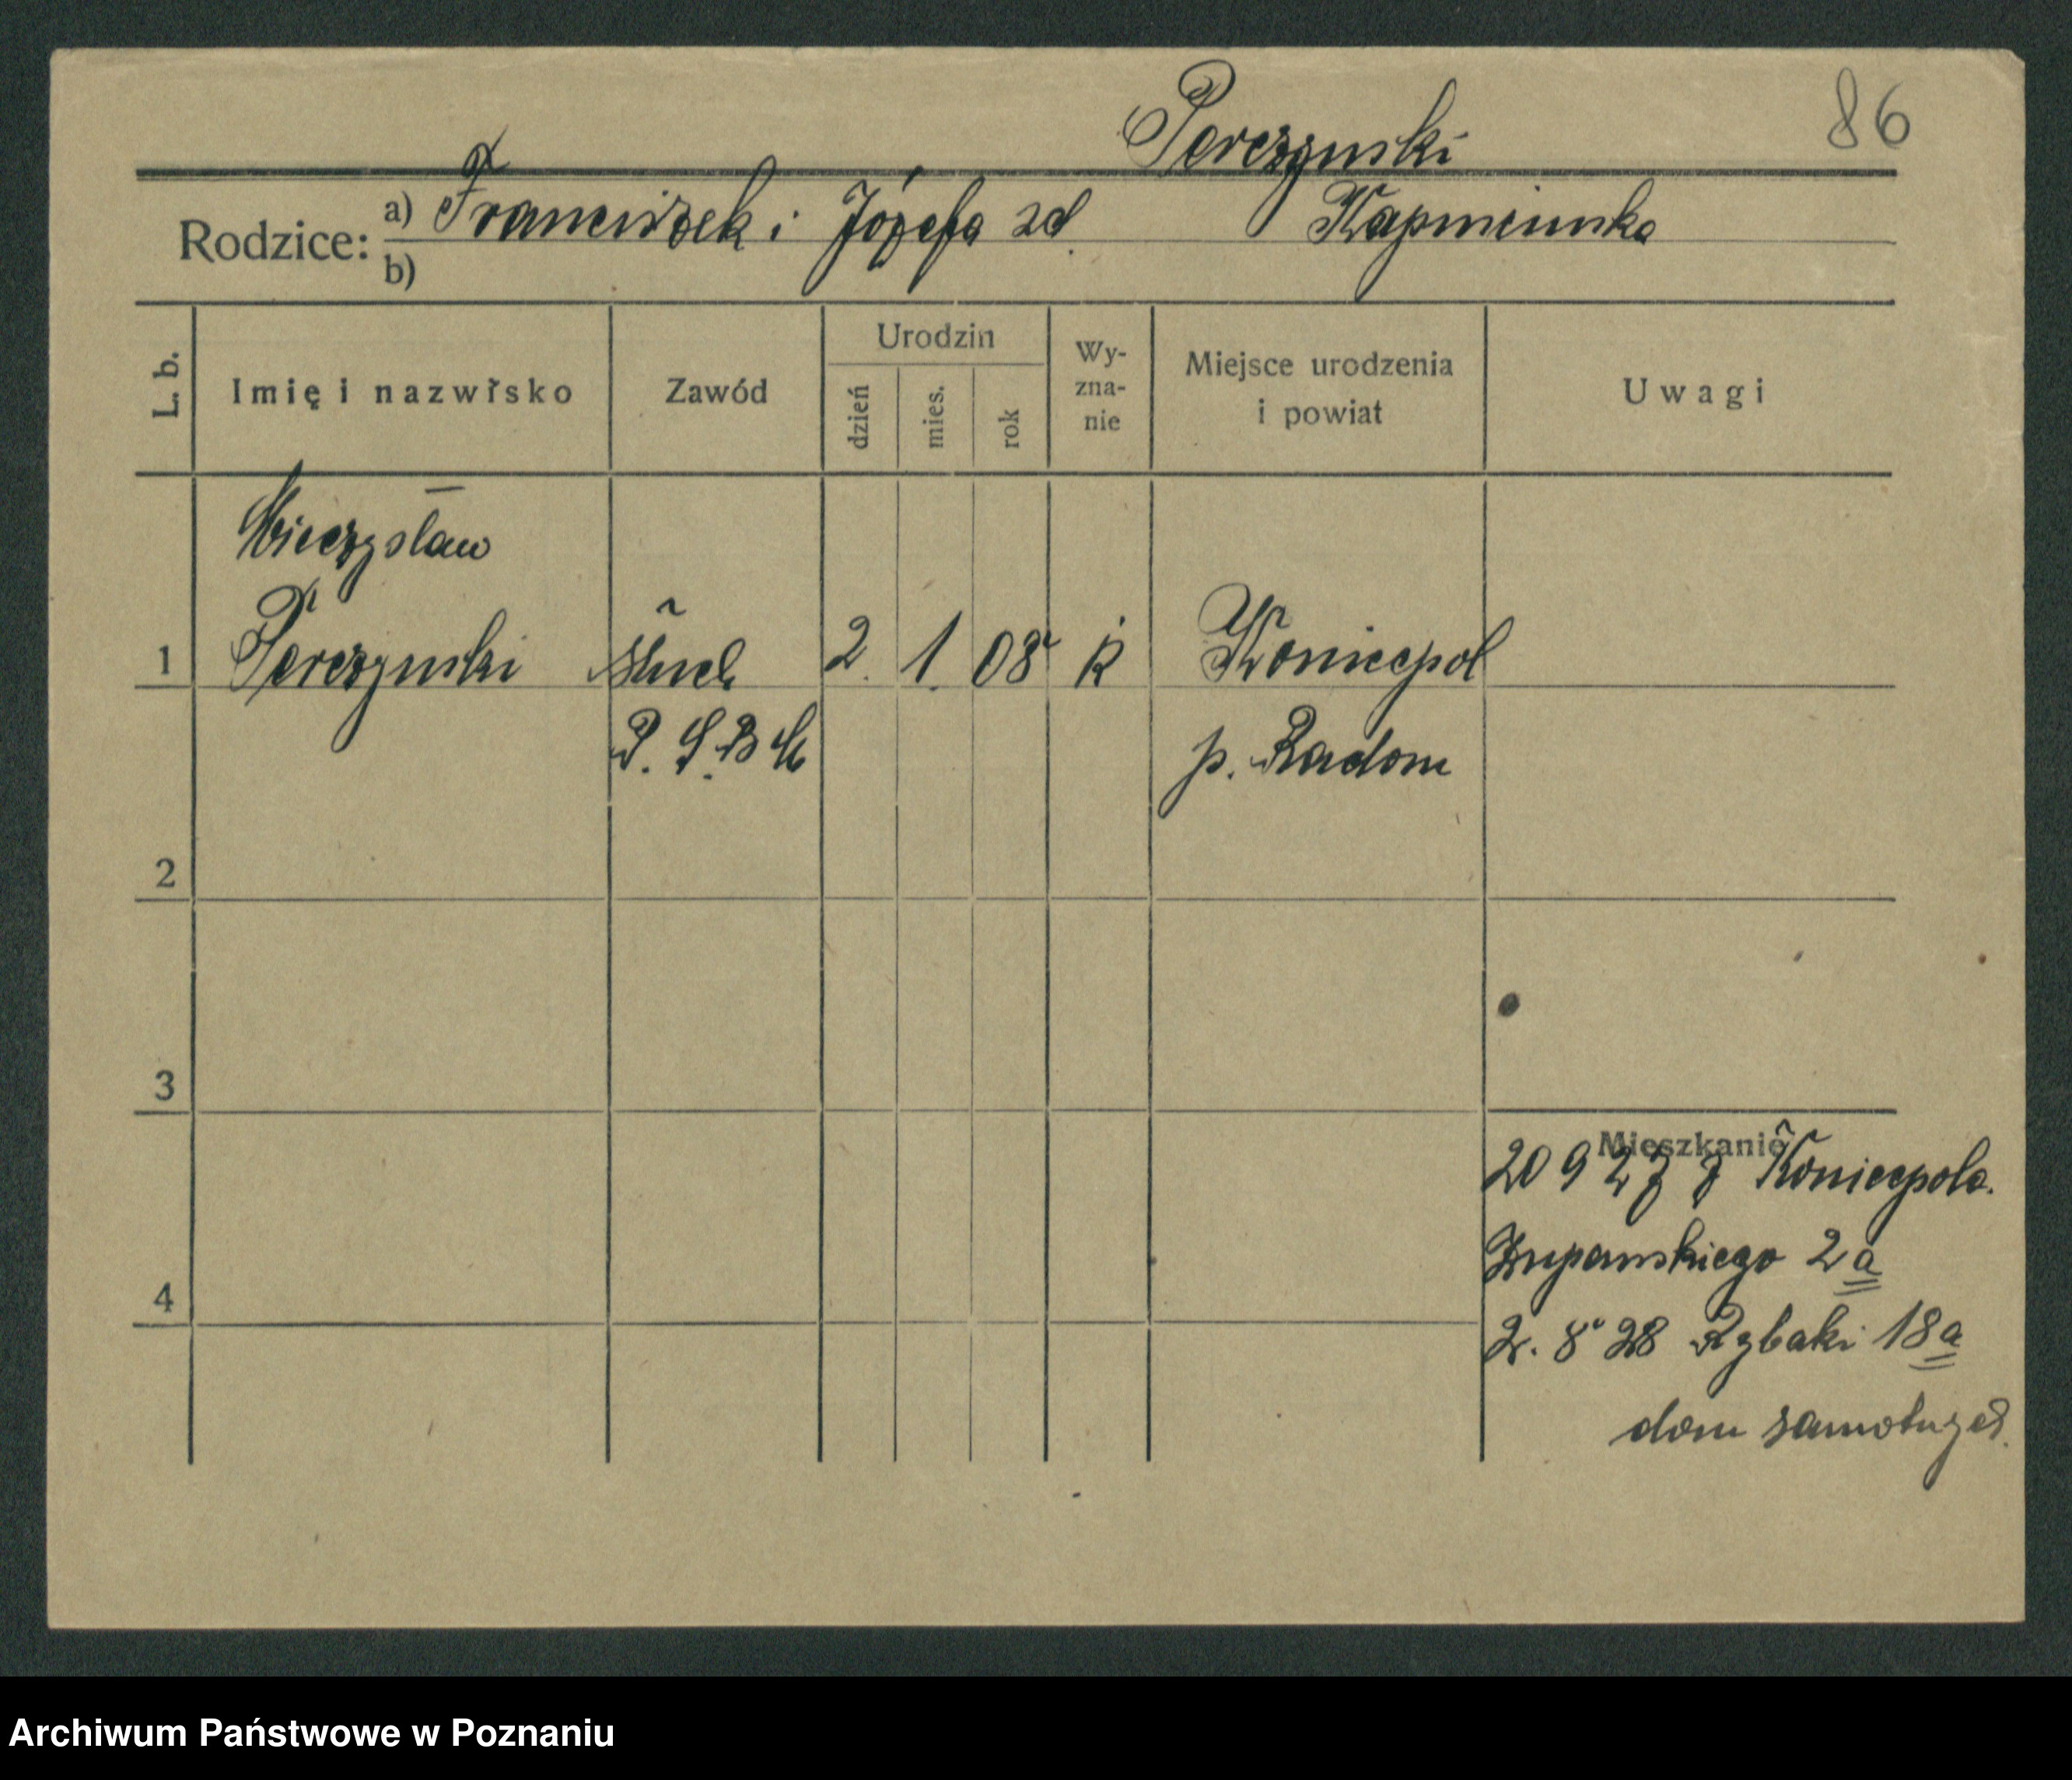 86
Perczynski
Rodzice: a) Franciszek i Józefa zd. Kapmiunska
b)
L. b. Imię i nazwisko Zawód Urodzin dzień mies. rok Wy-zna-nie Miejsce urodzenia i powiat Uwagi
Mieczysław
1 Perczynski słuch 2. 1. 08 k Koniecpol
P. S. B M p. Radom
2
3
Mieszkanie
20 9 27 z Koniecpola.
Zupanskiego 2a
4
2. 8 28 Rybaki 18a
dom
Archiwum Państwowe w Poznaniu